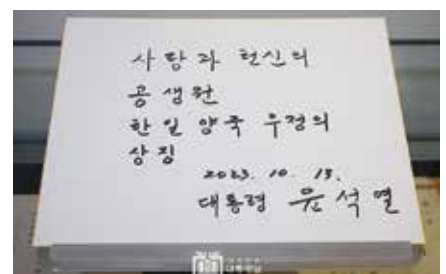 사랑과 헌신의
공생원
한일 양국 우정의
상징
2023. 10. 13.
대통령 윤석열